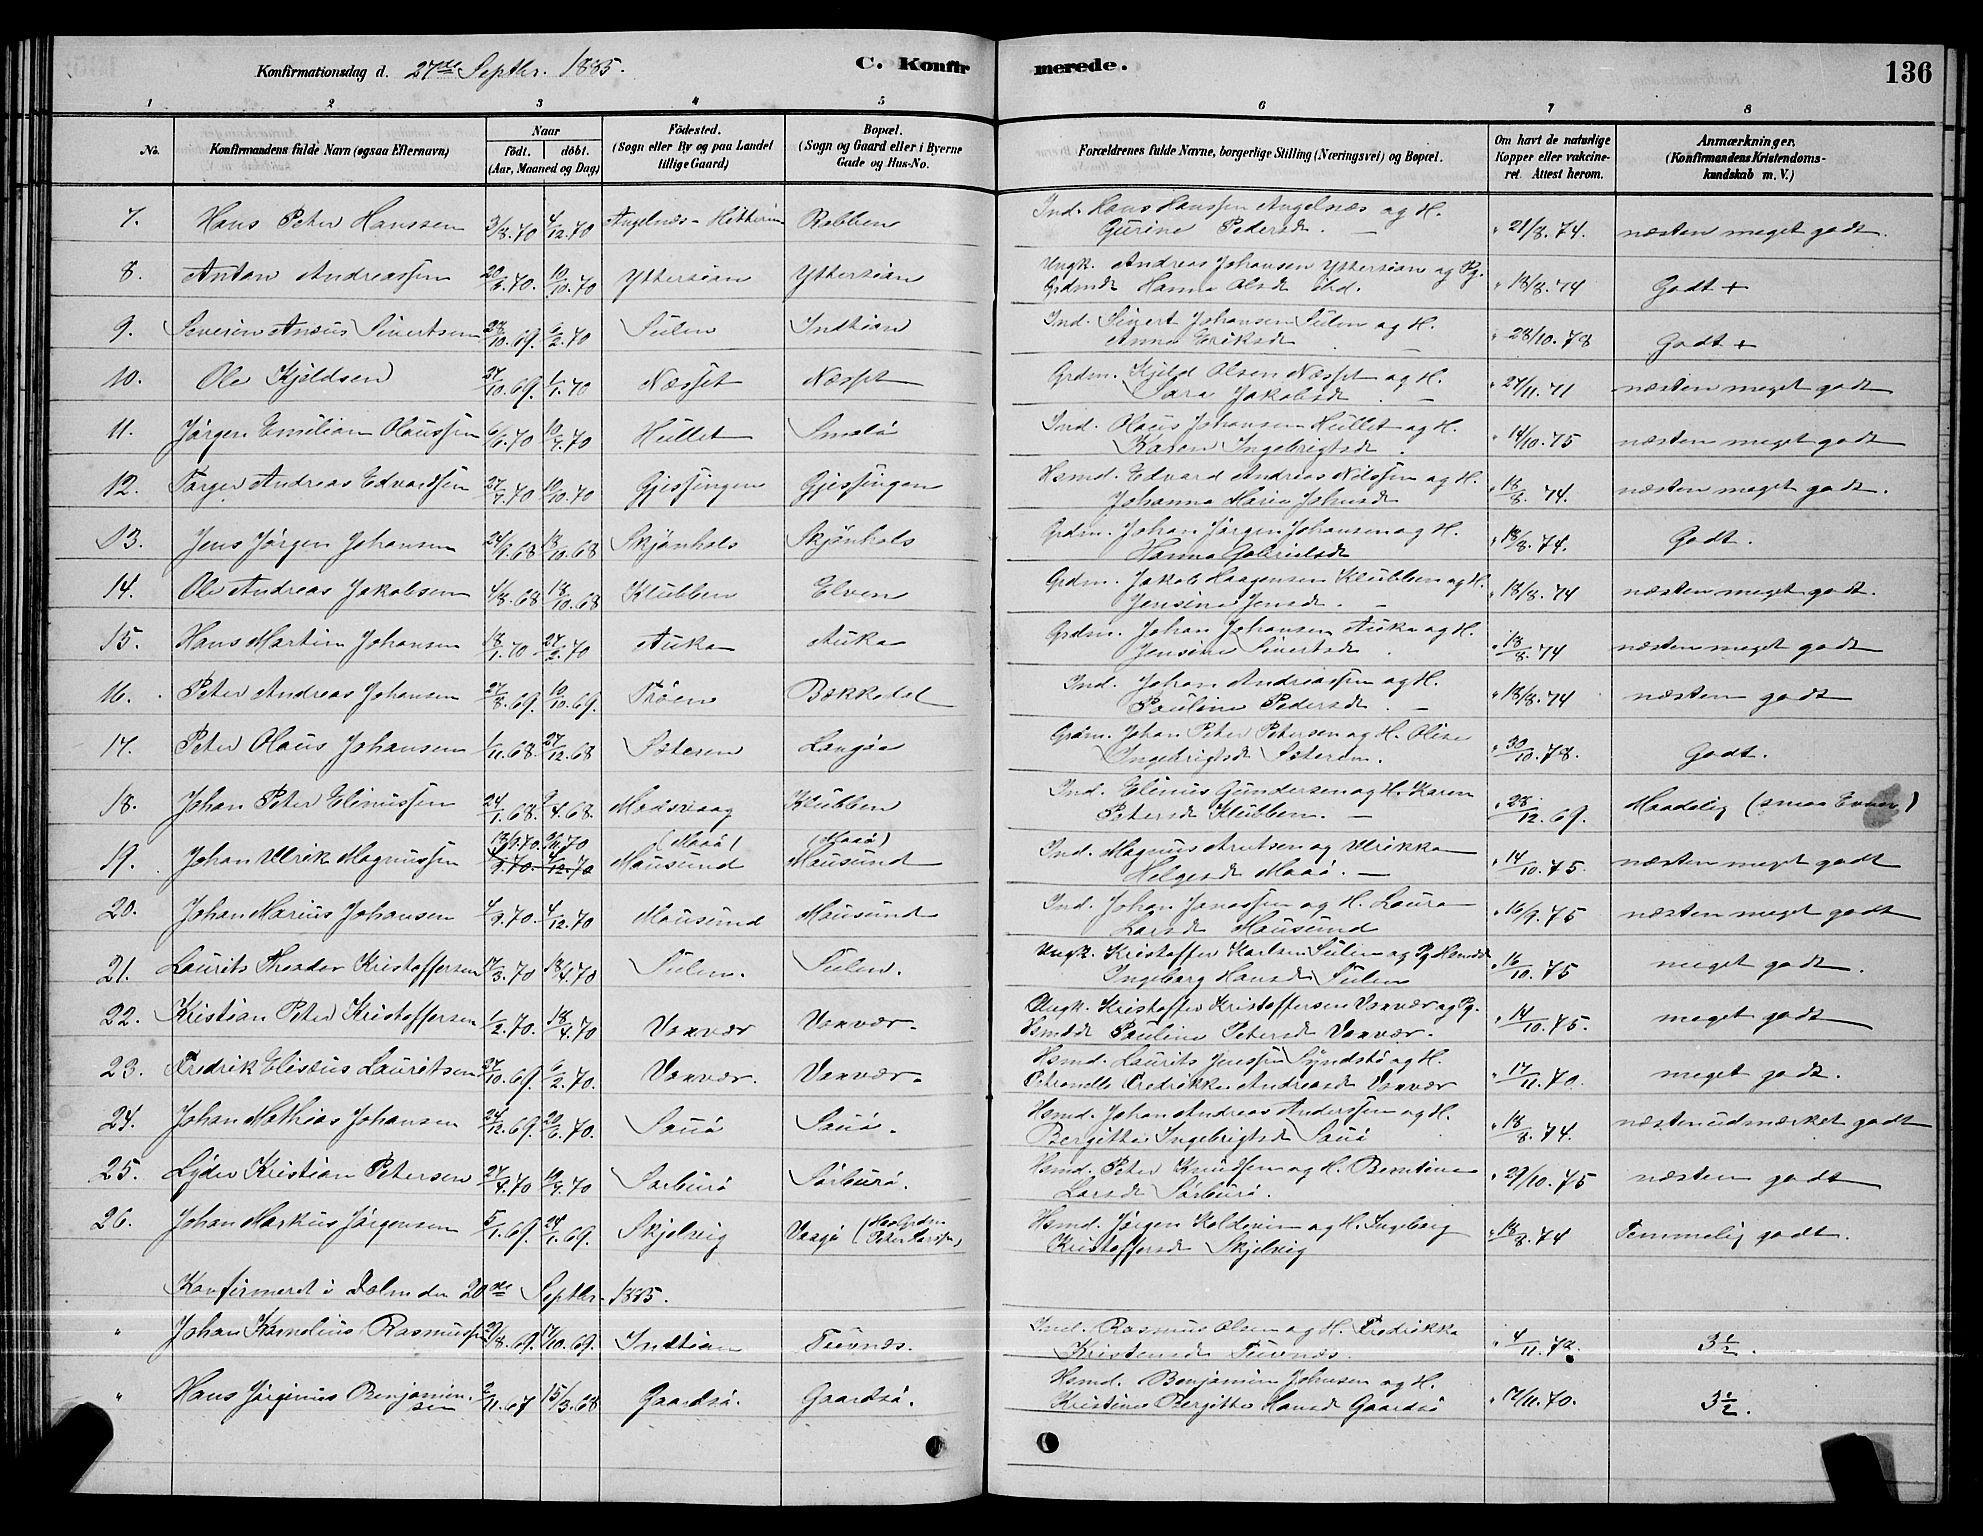 Konfirmationsdag d. 27de Septbr. 1885.
C. Konfirmerede.
136
1 2 3 4 5 6 7 8
No.
Konfirmandens fulde Navn (ogsaa Efternavn)
Naar
födt. döbt.
(Aar, Maaned og Dag)
Födested.
(Sogn eller By og paa Landet
tillige Gaard)
Bopæl.
(Sogn og Gaard eller i Byerne
Gade og Hus-No.
Forældrenes fulde Navne, borgerlige Stilling (Næringsvei) og Bopæl.
Om havt de naturlige
Kopper eller vakcine-
ret. Attest herom.
Anmærkninger.
(Konfirmandens Kristendoms-
kundskab m. V.)
7. Hans Peter Hanssen 3/8.70 4/12.70 Angelnæs - Hitteren Robben Ind. Hans Hanssen Angelnæs og H.
Gurine Pedersd. " 21/8.74. næsten meget godt.
8. Anton Andreassen 20/6.70. 10/10.70 Yttersian Yttersian Ungk. Andreas Johansen Yttersian og Pg.
Grdmdt Hanna Olsdt " 18/8.74 Godt +
9. Severin Ansus Sivertsen 28/10.69. 6/2.70 Sulen Indtian Ind. Sivert Johansen Sulen og H.
Anna Eriksdt " 28/10.78 Godt +
10. Ole Kjeldsen 27/10.69. 1/1.70 Næsset Næsset Grdm. Kjeld Olsen Næsset og H.
Sara Jakobsdt " 27/11.71 næsten meget godt
11. Jørgen Emilian Olaussen 6/6.70 10/7.70 Hullet Smelø Ind. Olaus Johansen Hullet og H.
Karen Ingebrigtsdt. " 14/10.75 næsten meget godt
12. Torger Andreas Edvardsen 27/7.70 10/10.70 Gjessingen Gjessingen Hsmd. Edvard Andreas Nilssen og H.
Johanna Maria Johnsdt " 18/8.74. næsten meget godt.
13. Jens Jørgen Johansen 24/9.68 18/10.68 Skjønhals Skjønhals Grdm. Johan Jørgen Johansen og H.
Hanna Gabrielsdt " 18/8.74. Godt.
14. Ole Andreas Jakobsen 4/8.68 18/10.68 Klubben Elven Grdm. Jakob Haagensen Klubben og H.
Jensine Jensdt. " 18/8.74 næsten meget godt.
15. Hans Martin Johansen 18/1.70 27/2.70 Auka Auka Grdm. Johan Johansen Auka og H.
Jensine Sivertsdt. " 18/8.74 næsten meget godt
16. Peter Andreas Johansen 27/8.69 10/10.69. Trøen Bekkedal Ind. Johan Andreassen og H.
Pauline Pedersdt. " 18/8.74 næsten godt
17. Peter Olaus Johansen 1/11.68. 27/12.68 Sæteren Langøa Grdm. Johan Peter Petersen og H. Oline
Ingebrigtsdt Sæteren. " 30/10.78. Godt.
18. Johan Peter Elinussen 24/1.68. 4.68. Madsvaag Klubben Ind. Elinus Gundersen og H. Karen
Petersdt Klubben. " 28/12.69. Maadelig (smaa Evner)
18/9.70. 70 (Maaø) (Maaø)
19. Johan Ulrik Magnussen 9.70. 4/12.70 Mausund Mausund Ind. Magnus Arntsen og Ulrikka
Helgesdt Maaø. " 14/10.75. næsten meget godt
20. Johan Marius Johansen 4/9.70. 4/12.70 Mausund Mausund Ind. Johan Jonassen og H. Laura
Larsdt Mausund " 16/9.75 næsten meget godt
21. Laurits Theodor Kristoffersen 17/3.70 18/4.70 Sulen. Sulen. Ungk. Kristoffer Karlsen Sulen og Pg Hsmdt
Ingeborg Hansdt Sulen " 16/10.75 meget godt.
22. Kristian Peter Kristoffersen 1/2.70. 18/4.70 Vanvær Vanvær. Ungk. Kristoffer Kristoffersen Vanvær og Pg.
Hsmddt Pauline Petersdt Vanvær. " 14/10.75. meget godt
23. Fredrik Elisæus Lauritsen 27/10.69. 6/2.70. Vanvær. Vanvær. Hsmd. Laurits Jenssen Syndstø og H.
Petronelle Fredrikke Andreasdt Vanvær " 17/11.70. meget godt.
24. Johan Mathias Johansen 24/12.69. 20/6.70. Sauø Sauø. Hsmd. Johan Andreas Anderssen og H.
Bergitha Ingebrigtsdt Sauø " 18/8.74. næsten udmærket godt
25. Lyder Kristian Petersen 27/4.70 10/7.70 Sørburø Sørburø. Hsmd. Peter Knudsen og H. Berntine
Larsdt Sørburø. " 29/10.75 næsten godt
26. Johan Markus Jørgensen 5/1.69. 24/1.69. Skjelvig Vaagø (Hos Grdm.
Peter Larssen) Hsmd. Jørgen Koldevin og H. Ingeborg
Kristoffersdt Skjelvig " 18/8.74 Temmelig godt.
Konfirmeret i Dolm den 20de Septbr. 1885.
" Johan Kornelius Rasmussen 29/8.69. 17/10.69. Indtian Tuvnæs. Ind. Rasmus Olsen og H. Fredrikka
Kristensdt Tuvnæs. " 4/11.72. 3½.
" Hans Jørginus Benjamin-
sen 2/11.67 15/3.68 Gaardsø Gaardsø. Hsmd. Benjamin Johnsen og H.
Kristine Bergitte Hansdt Gaardsø " 17/11.70. 3½.